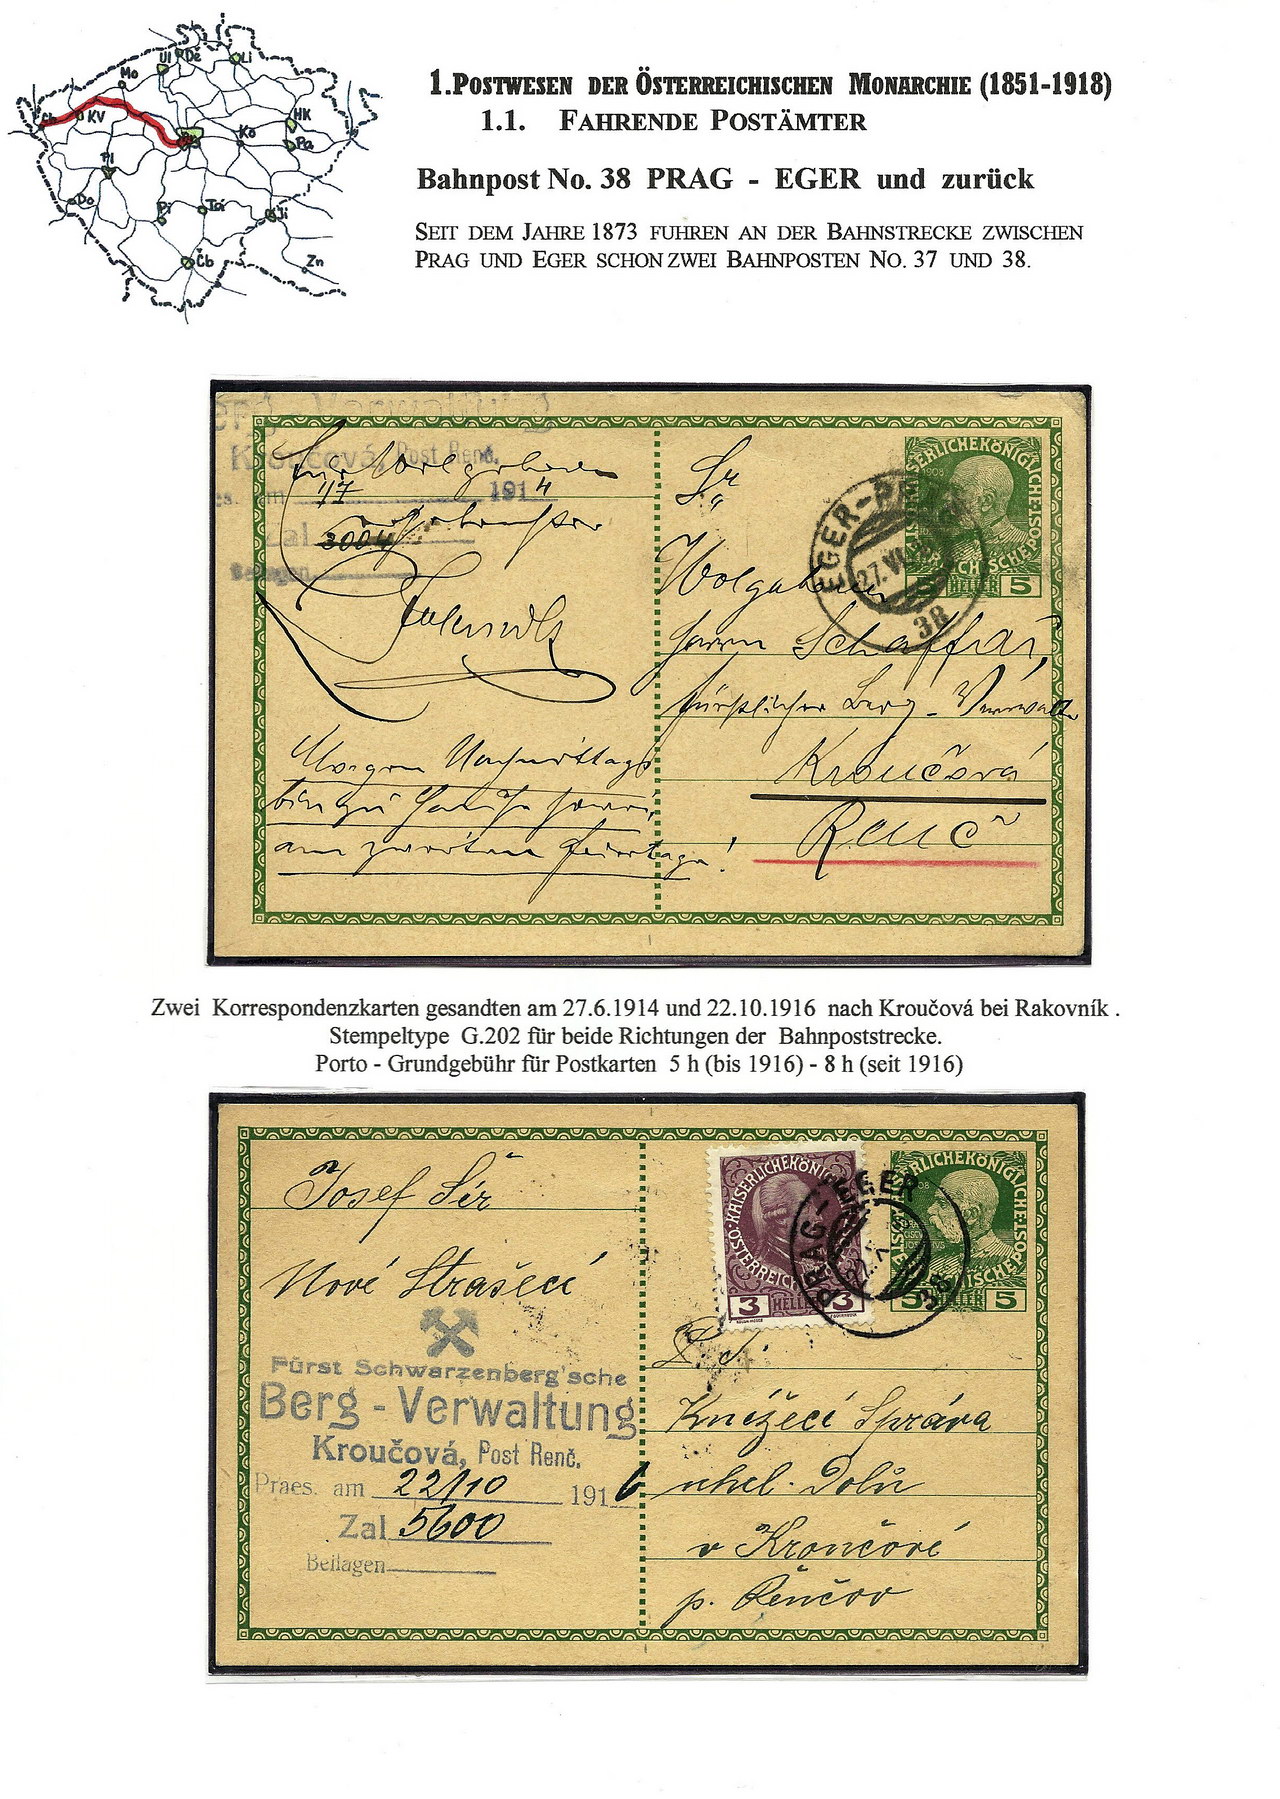 Ul De Li
Mo
Ch KV HK
Kö Pa
Pl
Do Pi Tá Ji
Čb Zn
1.POSTWESEN DER ÖSTERREICHISCHEN MONARCHIE (1851-1918)
1.1. FAHRENDE POSTÄMTER
Bahnpost No. 38 PRAG - EGER und zurück
SEIT DEM JAHRE 1873 FUHREN AN DER BAHNSTRECKE ZWISCHEN
PRAG UND EGER SCHON ZWEI BAHNPOSTEN NO. 37 UND 38.
Berg-Verwaltung
Kroučová, Post Renč.
1/7 1914
Zal 3004
Beilagen
Morgen Nachmittags
am zweiten Feiertage!
KAISERLICHE KÖNIGLICHE ÖSTERREICHISCHE
1908
5 HELLER 5
EGER-PRAG
27. VI
38
Sr
Wolgeboren
Herrn Schaffář,
fürstlicher Berg-Verwalter
Kroučová
Renč
Zwei Korrespondenzkarten gesandten am 27.6.1914 und 22.10.1916 nach Kroučová bei Rakovník .
Stempeltype G.202 für beide Richtungen der Bahnpoststrecke.
Porto - Grundgebühr für Postkarten 5 h (bis 1916) - 8 h (seit 1916)
Josef Sír
Nové Strašecí
Fürst Schwarzenberg'sche
Berg-Verwaltung
Kroučová, Post Renč.
Praes. am 22/10 1916
Zal 5600
Beilagen
3 HELLER 3
PRAG-EGER
38
5 HELLER 5
Knížecí Správa
uhel. Dolů
v Kroučové
p. Řenčov